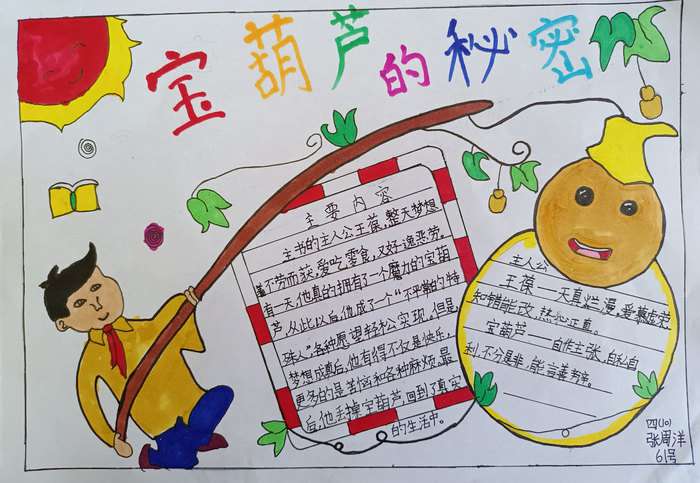 宝葫芦的秘密
主要内容
主书的主人公王葆,整天梦想
着不劳而获,爱吃零食,又好逸恶劳。
有一天,他真的拥有了一个魔力的宝葫
芦,从此以后,他成了一个“不平常的特
殊人”各种愿望轻松实现,但是
梦想成真后,他有得不仅是快乐,
更多的是苦恼和各种麻烦,最
后,他丢掉宝葫芦,回到了真实
的生活中。
主人公
王葆——天真烂漫,爱慕虚荣,
知错能改,热心正直。
宝葫芦——自作主张,自私自
利,不分是非,能言善
四(10)
张周洋
61号